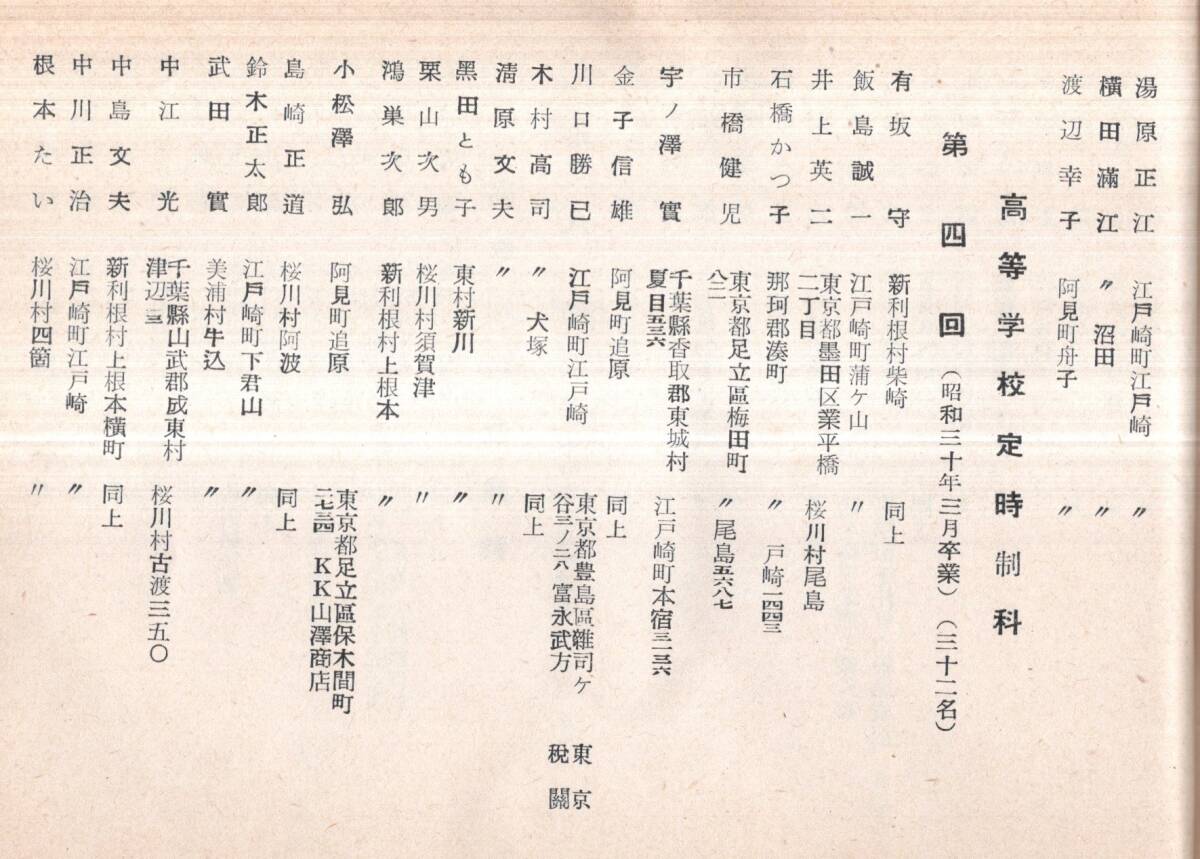 湯原正江　江戸崎町江戸崎　〃
橫田滿江　〃　沼田　〃
渡辺幸子　阿見町舟子　〃
高等学校定時制科
第四回（昭和三十年三月卒業）（三十二名）
有坂守　新利根村柴崎　同上
飯島誠一　江戸崎町蒲ヶ山　〃
井上英二　東京都墨田区業平橋二丁目　桜川村尾島
石橋かつ子　那珂郡湊町　〃　戸崎一四四三
市橋健児　東京都足立區梅田町八二　〃　尾島五六八七
宇ノ澤實　千葉縣香取郡東城村夏目五三六　江戸崎町本宿三一三六
金子信雄　阿見町追原　同上
川口勝己　江戸崎町江戸崎　東京都豊島區雜司ヶ谷三ノ二八　富永武方　東京税關
木村高司　〃　犬塚　同上
清原文夫　〃　〃
黑田とも子　東村新川　〃
栗山次男　桜川村須賀津　〃
鴻巣次郎　新利根村上根本　〃
小松澤弘　阿見町追原　東京都足立區保木間町二七三四　ＫＫ山澤商店
島崎正道　桜川村阿波　同上
鈴木正太郎　江戸崎町下君山　〃
武田實　美浦村牛込　〃
中江光　千葉縣山武郡成東村津辺　桜川村古渡三五〇
中島文夫　新利根村上根本横町　同上
中川正治　江戸崎町江戸崎　〃
根本たい　桜川村四箇　〃